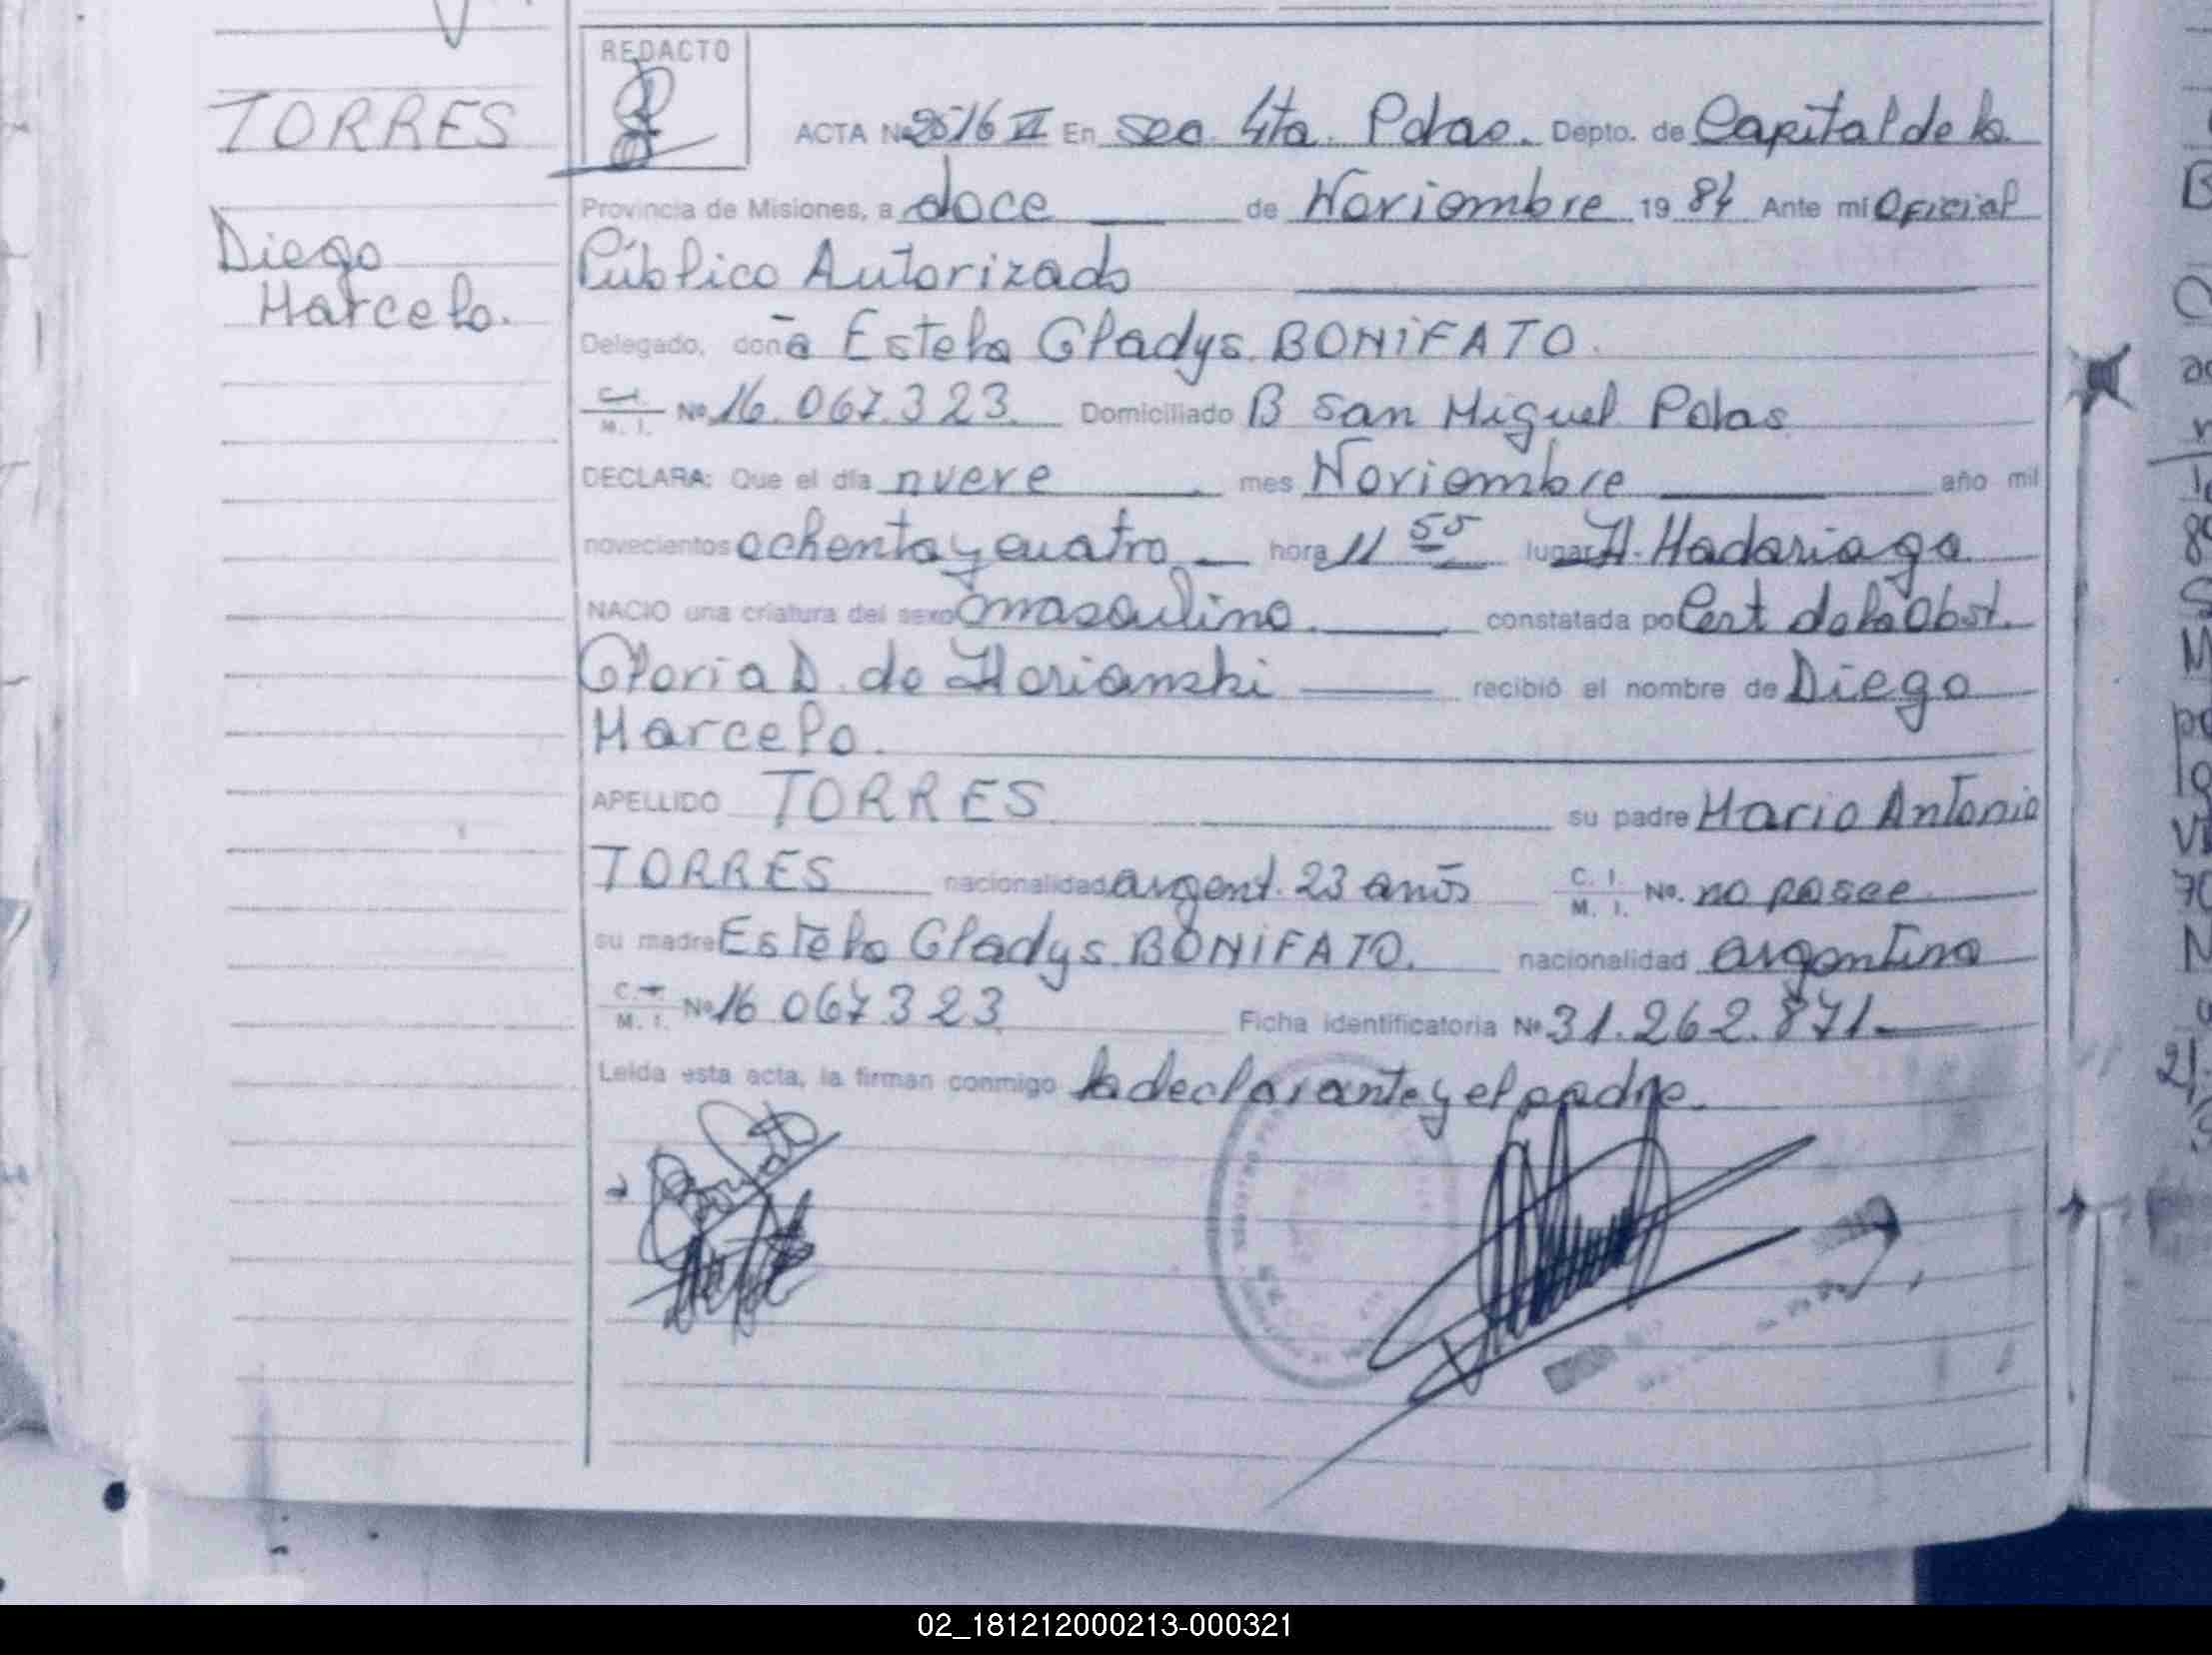 TORRES
Diego
Marcelo.
REDACTO
ACTA Nº 2516 VI En sec. 4ta. Pdas. Depto. de Capital de la
Provincia de Misiones, a doce de Noviembre 1984 Ante mí Oficial
Público Autorizado
Delegado, doña Estela Gladys BONIFATO.
C.I. M. I. Nº 16.067.323. Domiciliado B San Miguel Pdas
DECLARA: Que el día nueve mes Noviembre año mil
novecientos ochenta y cuatro hora 11 55 lugar H. Madariaga
NACIO una criatura del sexo masculino. constatada po Cert de la Obst.
Gloria D. de recibió el nombre de Diego
Marcelo.
APELLIDO TORRES su padre Mario Antonio
TORRES nacionalidad argent. 23 años C. I. M. I. Nº. no posee
su madre Estela Gladys BONIFATO. nacionalidad argentina
C. I. M. I. Nº 16 067323 Ficha identificatoria Nº 31.262.871.
Leída esta acta, la firman conmigo la declarante y el padre.
02_181212000213-000321